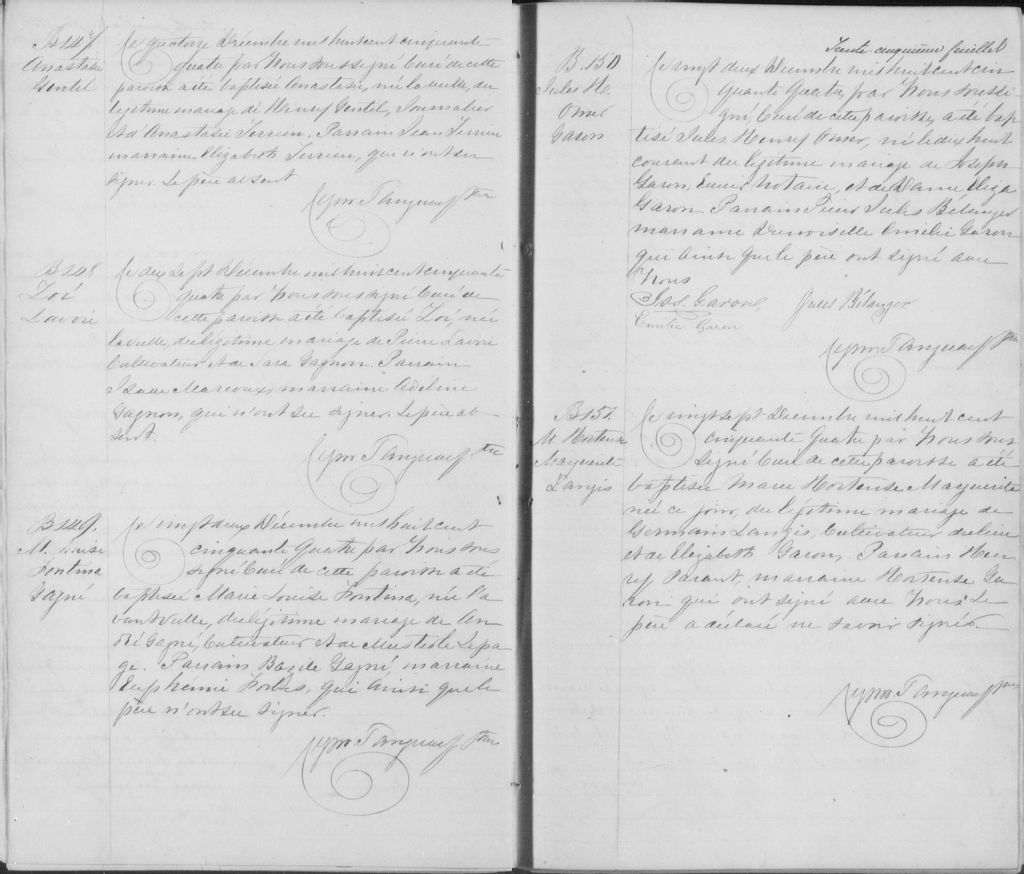 B 147
Anastasie
Gentil
Le quatorze Décembre mil huit cent cinquante
quatre par Nous soussigné Curé de cette
paroisse a été baptisée Anastasie, née la veille, du
légitime mariage de Henry Gentil, Journalier
et d'Anastasie Terrien. Parrain Jean Terrien
marraine Elizabeth Terrien, qui n'ont su
signer. Le père absent
Cypr. Tanguay Ptre
B 148
Zoé
Lavoie
Le dix sept Décembre mil huit cent cinquante
quatre par Nous soussigné Curé de
cette paroisse a été baptisée Zoé, née
la veille, du légitime mariage de Pierre Lavoie
Cultivateur et de Sara Gagnon. Parrain
Isaac Marcoux, marraine Adeline
Gagnon, qui n'ont su signer. Le père ab-
sent.
Cypr. Tanguay Ptre
B 149.
M. Louise
Fortuna
Gagné
Le vingt deux Décembre mil huit cent
cinquante quatre par Nous sous
signé Curé de cette paroisse a été
baptisée Marie Louise née l'a
vant veille, du légitime mariage de An
dré Gagné, Cultivateur et de Lepa
ge. Parrain Bazile Gagné marraine
Euphémie Forbes, qui ainsi que le
père n'ont su signer.
Cypr. Tanguay Ptre
Trente-cinquième feuillet
B. 150
Jules H.
Omer
Garon
Le vingt deux Décembre mil huit cent cin
quante quatre, par Nous soussi
gné, Curé de cette paroisse, a été bap
tisé Jules Henry Omer, né le dix huit
courant du légitime mariage de Joseph
Garon, Ecuier Notaire, et de Dame Eliza
Garon. Parrain Pierre Jules Bélanger
marraine Demoiselle Emilie Garon
qui ainsi que le père ont signé avec
Nous
Jos. Garon, Jules Bélanger
Emilie Garon
Cypr. Tanguay Ptre
B 151
M Hortense
Marguerite
Langis
Le vingt sept Décembre mil huit cent
cinquante quatre par Nous sous
signé Curé de cette paroisse a été
baptisée Marie Hortense Marguerite
née ce jour, du légitime mariage de
Germain Langis, Cultivateur du lieu
et de Elizabeth Garon, Parrain Hen
ry Parant, marraine Hortense Ga
ron qui ont signé avec Nous. Le
père a déclaré ne savoir signer.
Cypr. Tanguay Ptre